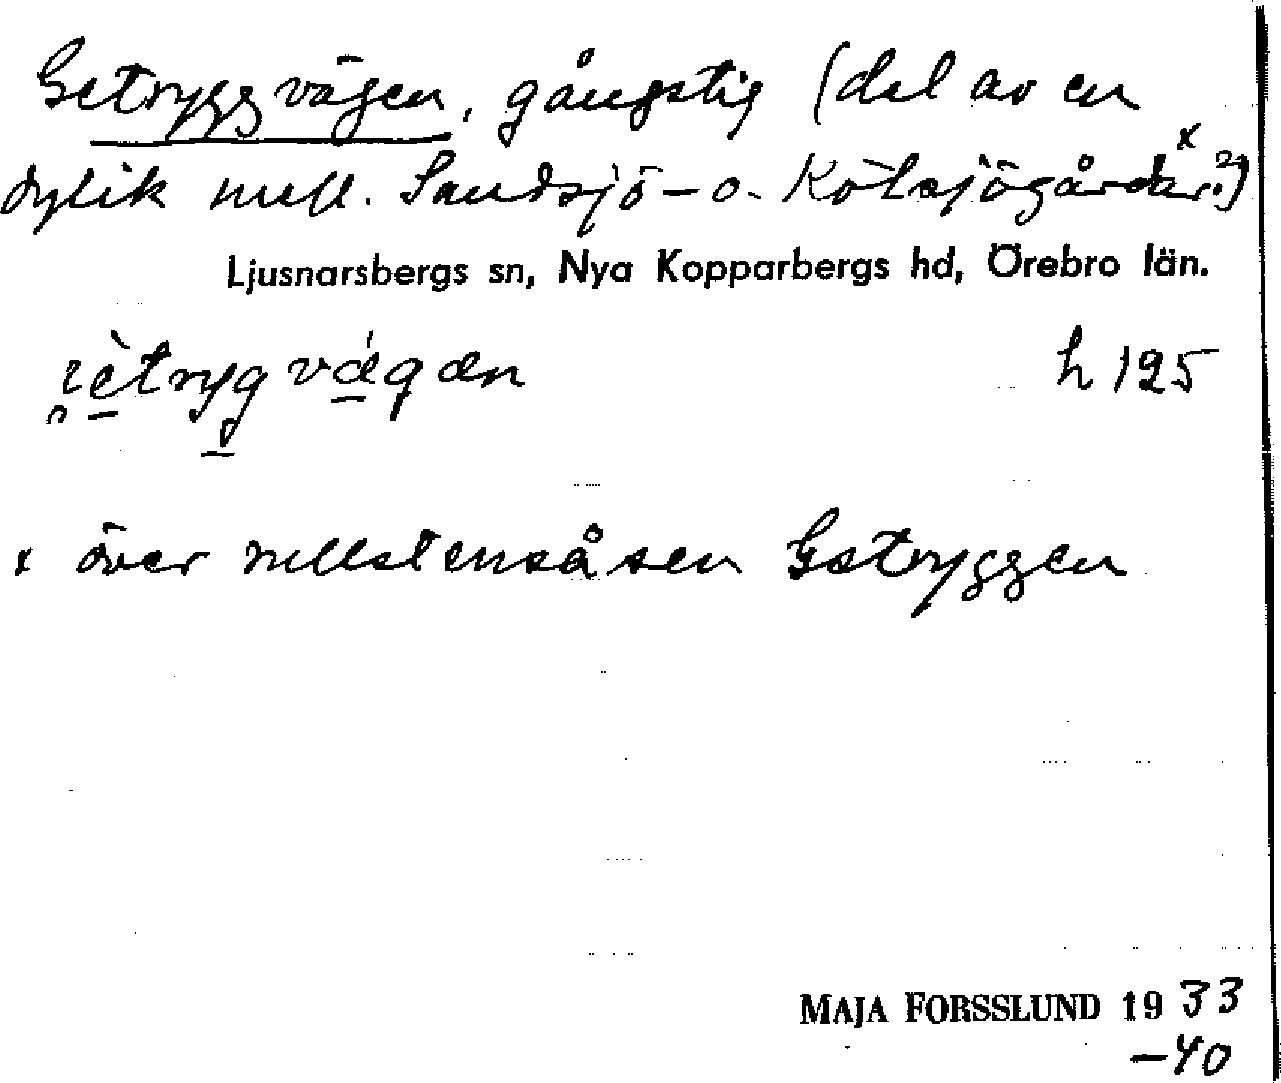 Getryggvägen, gångstig (del av en
dylik mell. Sandsjö- o. Kölsjögårdar.x?)
Ljusnarsbergs sn, Nya Kopparbergs hd, Örebro län.
h 125
x över rullstensåsen Getryggen
MAJA FORSSLUND 1933
-40